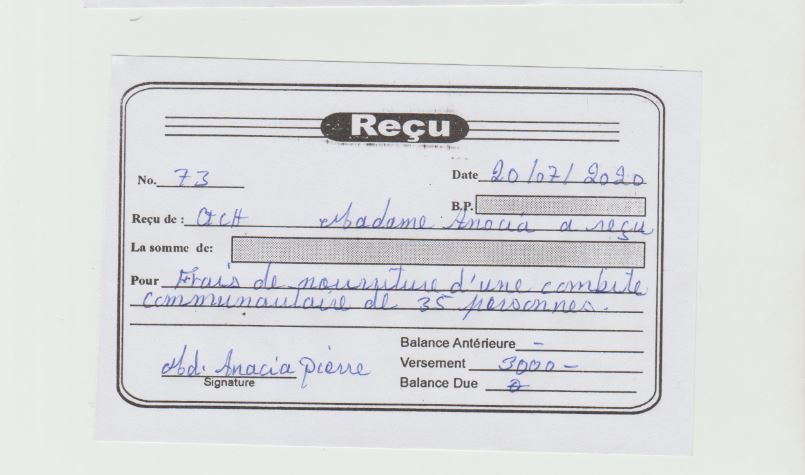 Reçu
No. 73
Date 20/07/2020
B.P.
Reçu de : Madame Anocia a reçu
La somme de:
Pour Frais de nourriture d'une combite
communautaire de 35 personnes.
Balance Antérieure -
Versement 3000 -
Balance Due
Md. Anacia Pierre
Signature